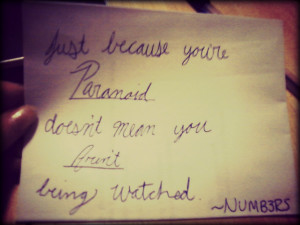 Just because you're
Paranoid
doesn't mean you
Aren't
being watched.
~NUMB3RS